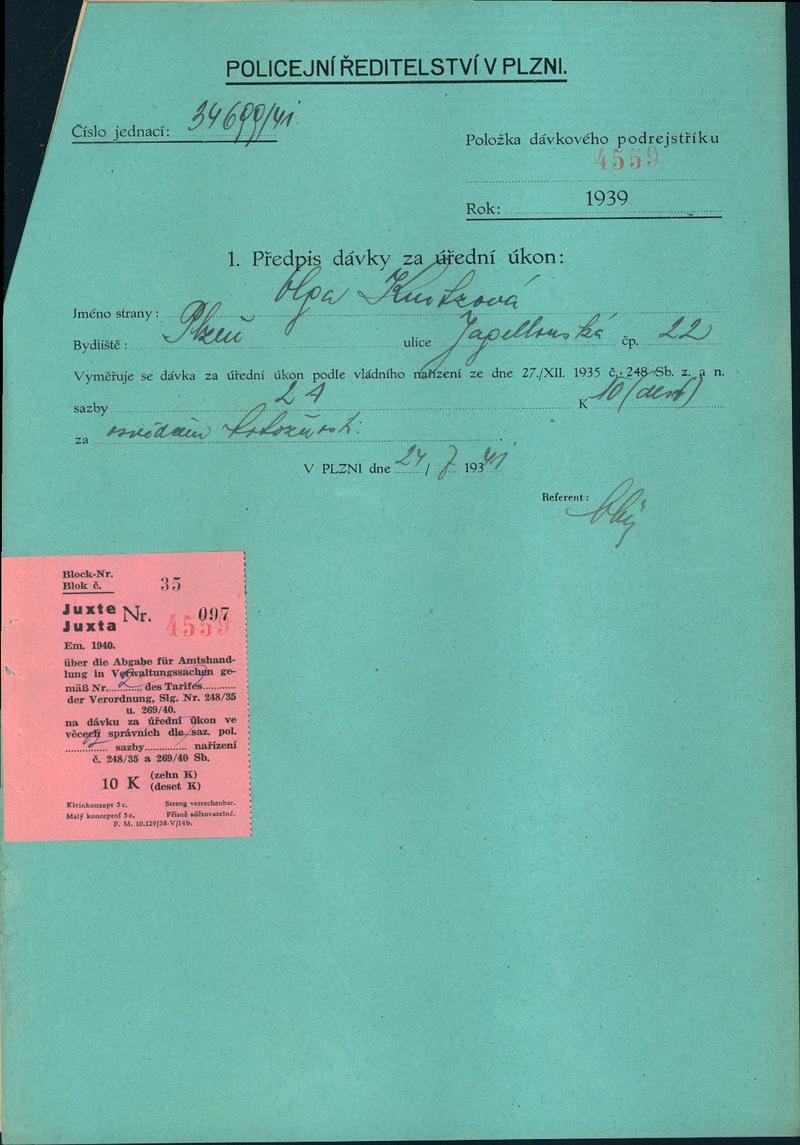 POLICEJNÍ ŘEDITELSTVÍ V PLZNI.
Číslo jednací: 34699/41
Položka dávkového podrejstříku
4559
Rok: 1939
1. Předpis dávky za úřední úkon:
Jméno strany: Olga
Bydliště: Plzeň ulice Jagellonská čp. 22
Vyměřuje se dávka za úřední úkon podle vládního nařízení ze dne 27./XII. 1935 č. 248 Sb. z. a n.
sazby K 10 (deset)
za osvědčení totožnosti.
V PLZNI dne 24/7 1941
Referent:
Block-Nr.
Blok č. 35
Juxte
Juxta Nr. 097
4559
Em. 1940.
über die Abgabe für Amtshand-
lung in Verwaltungssachen ge-
mäß Nr. 2 des Tarifes
der Verordnung, Slg. Nr. 248/35
u. 269/40.
na dávku za úřední úkon ve
věcech správních dle saz. pol.
2 sazby nařízení
č. 248/35 a 269/40 Sb.
10 K (zehn K)
(deset K)
Kleinkonzept 5 c. Streng verrechenbar.
Malý konceptní 5 c. Přísně zúčtovatelné.
F. M. 10.129/38-V/14b.